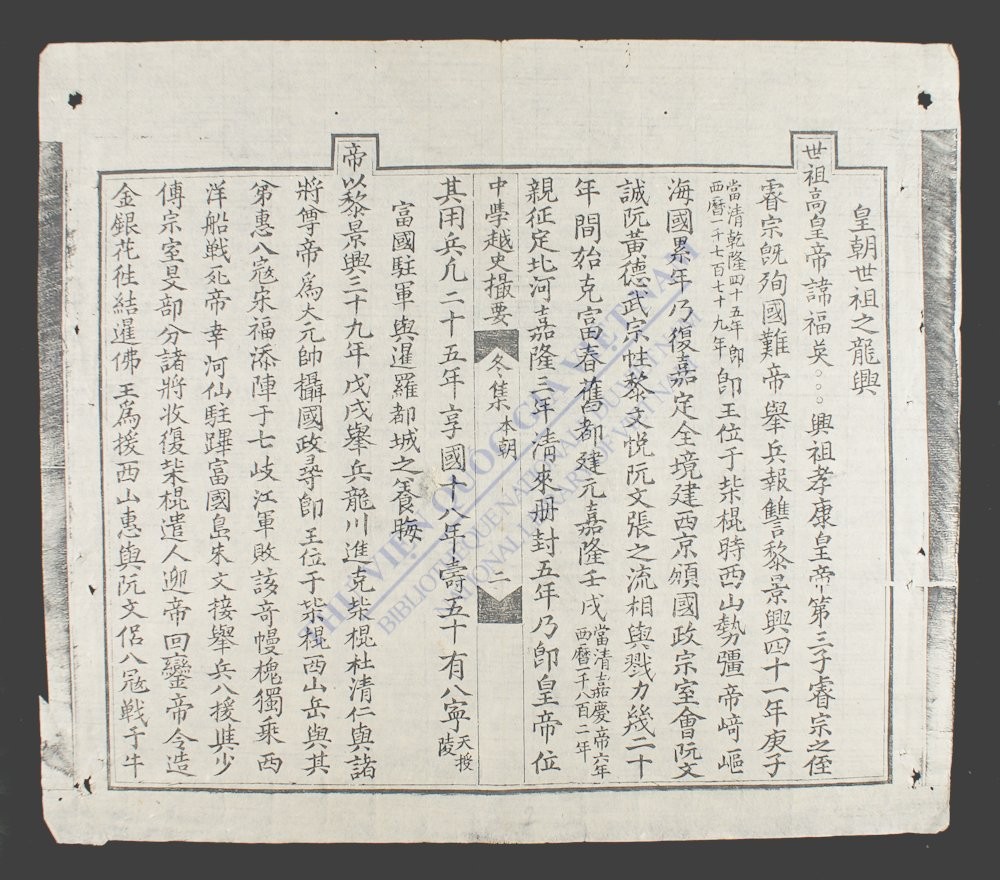 皇朝世祖之龍興
世祖高皇帝諱福英○○○興祖孝康皇帝第三子睿宗之侄
睿宗旣殉國難帝舉兵報讐黎景興四十一年庚子
當清乾隆四十五年卽
西曆一千七百七十九年
卽王位于柴棍時西山勢彊帝崎嶇
海國累年乃復嘉定全境建西京頒國政宗室會阮文
誠阮黃德武宗性黎文悅阮文張之流相與戮力幾二十
年間始克富春舊都建元嘉隆壬戌
當清嘉慶帝六年
西曆一千八百二年
親征定北河嘉隆三年清來册封五年乃卽皇帝位
中學越史撮要
冬集
本朝
二
其用兵凢二十五年享國十八年壽五十有八寧
天授
陵
富國駐軍與暹羅都城之養晦
帝以黎景興三十九年戊戌舉兵龍川進克柴棍杜清仁與諸
將尊帝爲大元帥攝國政尋卽王位于柴棍西山岳與其
第惠入寇宋福添陣于七岐江軍敗該奇幔槐獨乘西
洋船戰死帝幸河仙駐蹕富國島朱文接舉兵入援與少
傅宗室旻部分諸將收復柴棍遣人迎帝回鑾帝令造
金銀花徃結暹佛王爲援西山惠與阮文侶入寇戰于牛
THƯ VIỆN QUỐC GIA VIỆT NAM
BIBLIOTHEQUE NATIONALE DU VIETNAM
NATIONAL LIBRARY OF VIETNAM